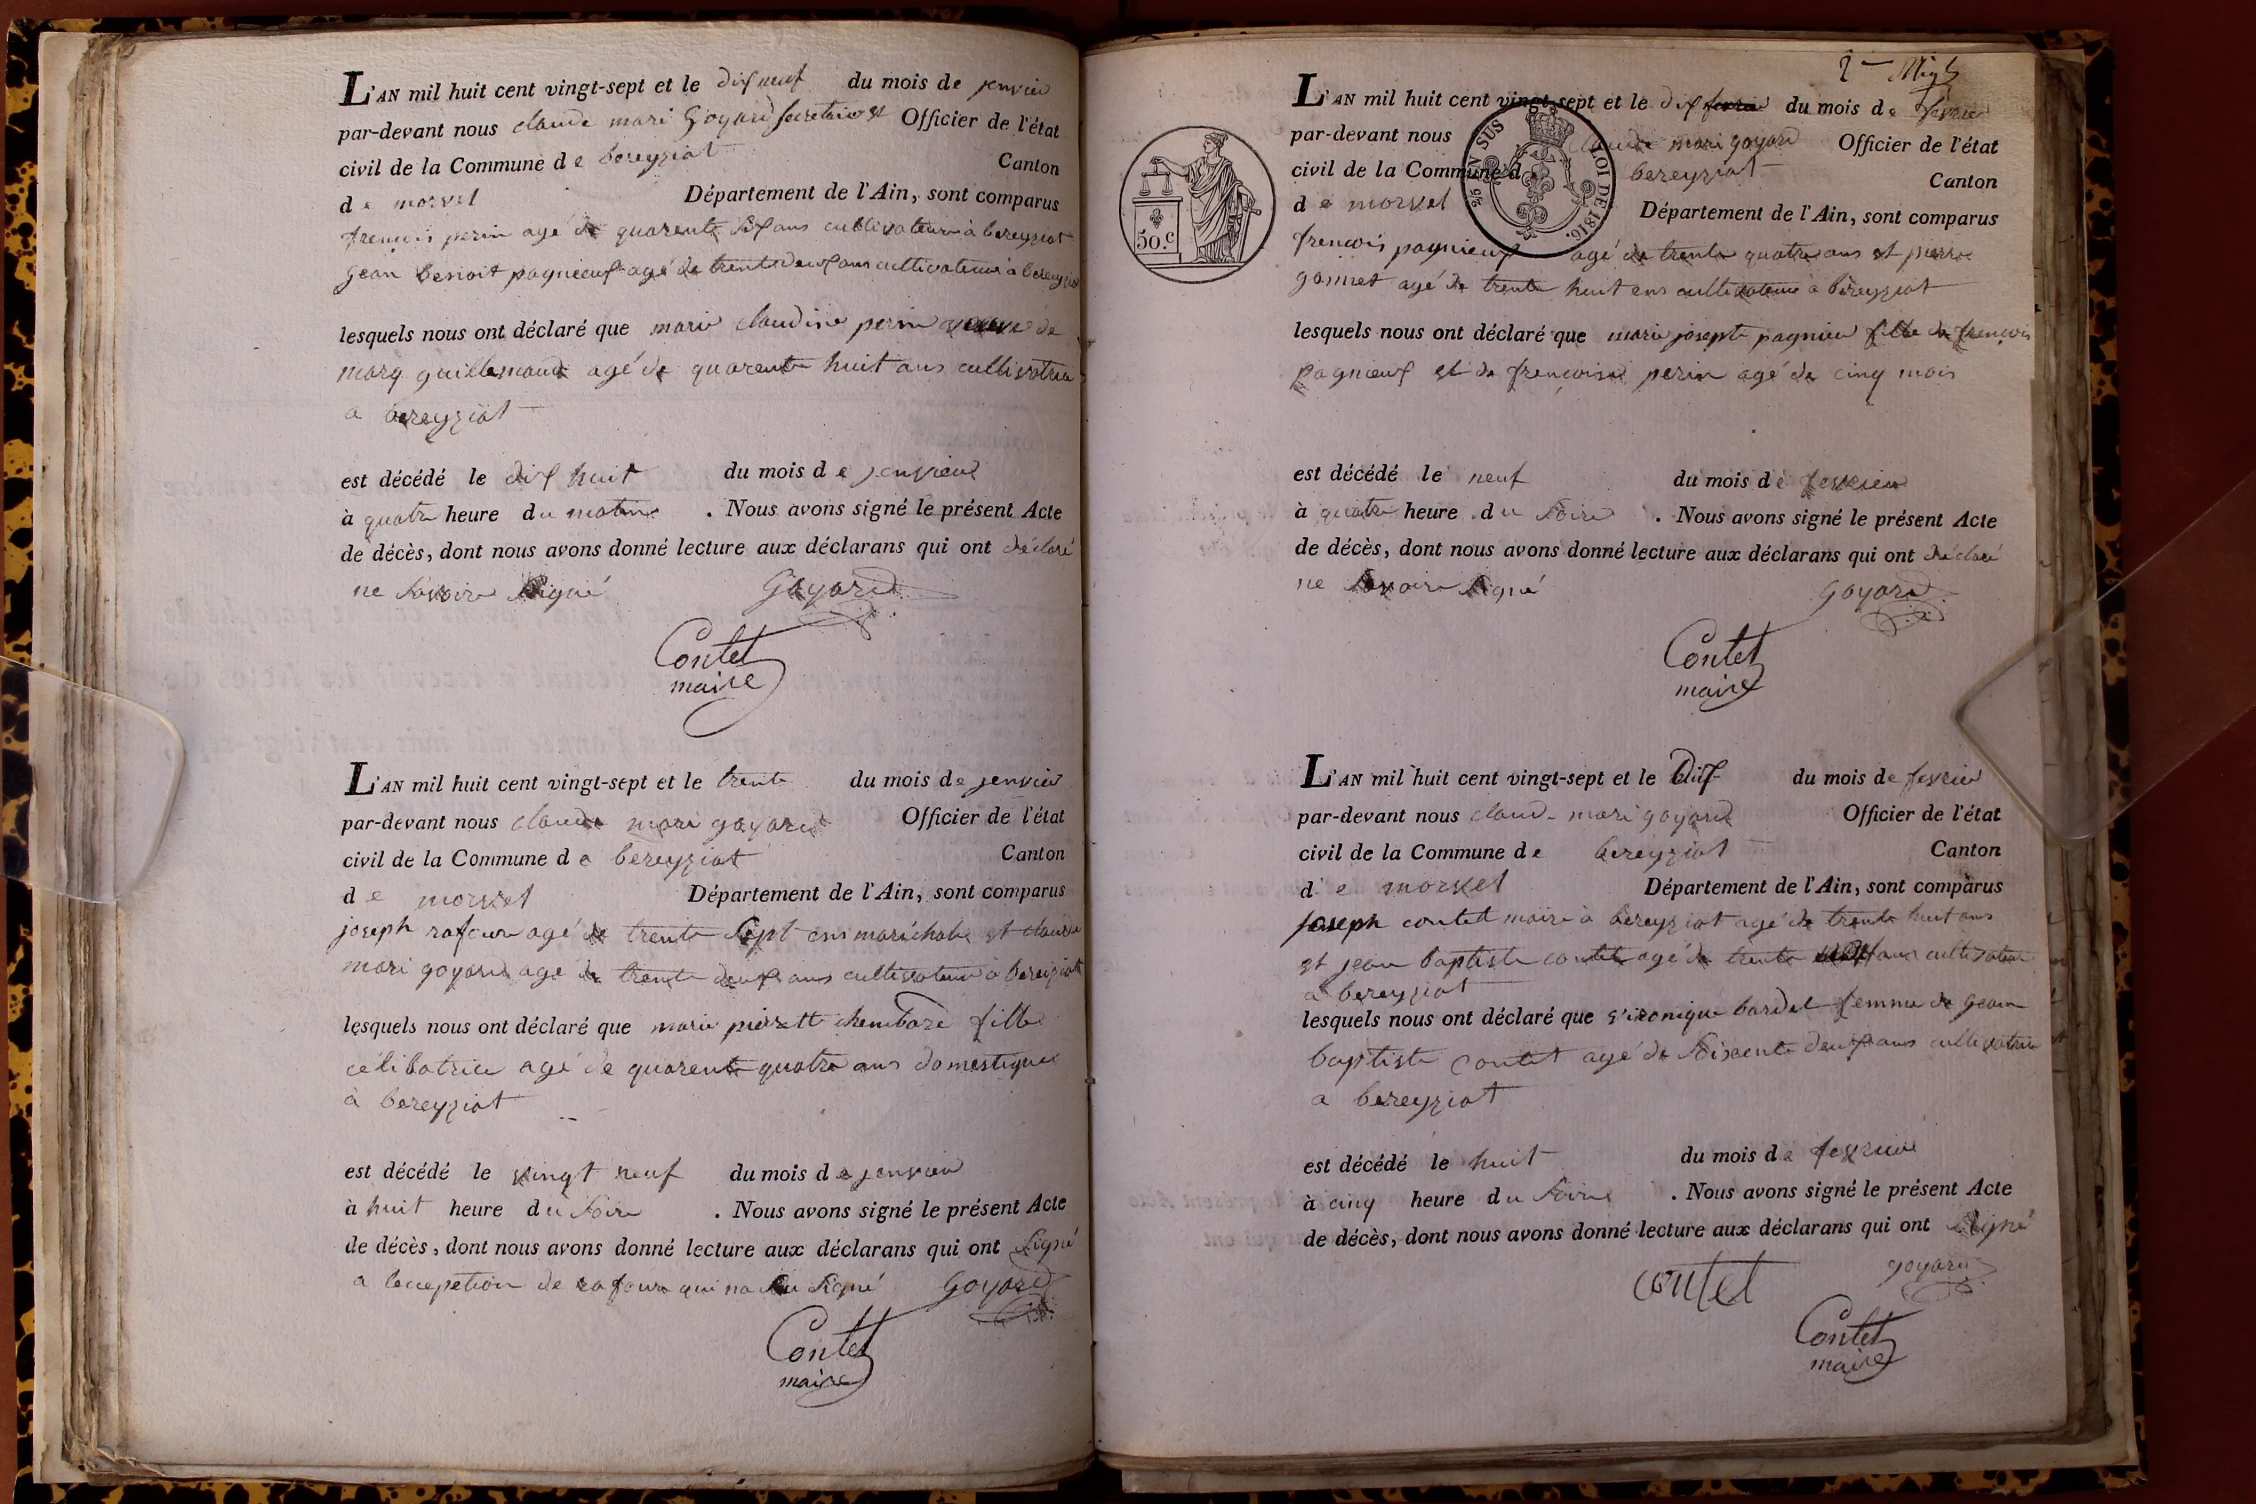 L'AN mil huit cent vingt-sept et le dix neuf du mois de jenvier
par-devant nous claude mari Goyard secretaire et Officier de l'état
civil de la Commune de bereyziat Canton
de morvel Département de l'Ain, sont comparus
frencois perin agé de quarente six ans cultivateur à bereyziat
gean benoit pagnieux agé de trente deux ans cultivateur à bereyziat
lesquels nous ont déclaré que marie claudine perin de
marq guillemaud agé de quarente huit ans cultivatrice
a bereyziat
est décédé le dix huit du mois de jenvieur
à quatre heure du matin . Nous avons signé le présent Acte
de décès, dont nous avons donné lecture aux déclarans qui ont déclaré
ne savoire signé Goyard
Contet
maire
L'AN mil huit cent vingt-sept et le trente du mois de jenvier
par-devant nous claude mari goyard Officier de l'état
civil de la Commune de bereyziat Canton
de morvel Département de l'Ain, sont comparus
joseph rafour agé de trente sept ens maréchale et claude
mari goyard age de trente deux ans cultivateur à bereiziat
lesquels nous ont déclaré que marie pierrett chembard fille
célibatrice agé de quarente quatre ans domestique
à bereyziat
est décédé le vingt neuf du mois de jenvier
à huit heure du soire . Nous avons signé le présent Acte
de décès, dont nous avons donné lecture aux déclarans qui ont signé
a leccepetion de rafour qui na su signé Goyard
Contet
maire
2me
L'AN mil huit cent vingt-sept et le dix du mois de fevrier
par-devant nous claude mari goyard Officier de l'état
civil de la Commune d bereyziat Canton
de morvel Département de l'Ain, sont comparus
frencois pagnieux agé de trente quatre ans et pierre
gonnet agé de trente huit ens cultivateur à bereyziat
50.c
25 EN SUS LOI DE 1816.
lesquels nous ont déclaré que marie josepte pagnieu fille de frencois
pagnieux et de frencoise perin agé de cinq mois
est décédé le neuf du mois de fevrieur
à quatre heure du soire . Nous avons signé le présent Acte
de décès, dont nous avons donné lecture aux déclarans qui ont déclaré
ne savoire signé Goyard
Contet
maire
L'AN mil huit cent vingt-sept et le Dix du mois de fevrier
par-devant nous claud mari goyard Officier de l'état
civil de la Commune de bereyziat Canton
de morvel Département de l'Ain, sont comparus
joseph contet maire à bereyziat agé de trente huit ans
et jean baptiste contet agé de trente ans cultivateur
a bereyziat
lesquels nous ont déclaré que v'ironique bardet femme de gean
baptiste contet agé de soisente deux ans cultivatrice
a bereyziat
est décédé le huit du mois de fevrier
à cinq heure du soire . Nous avons signé le présent Acte
de décès, dont nous avons donné lecture aux déclarans qui ont signé
contet goyard
Contet
maire